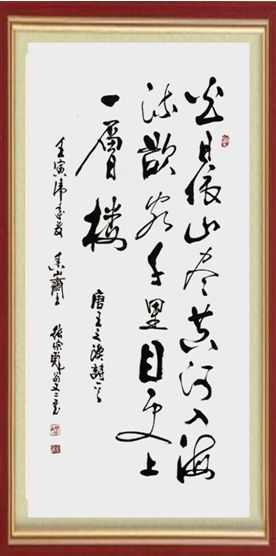 白日依山尽黄河入海
流欲穷千里目更上
一層楼
唐王之渙詩
壬寅